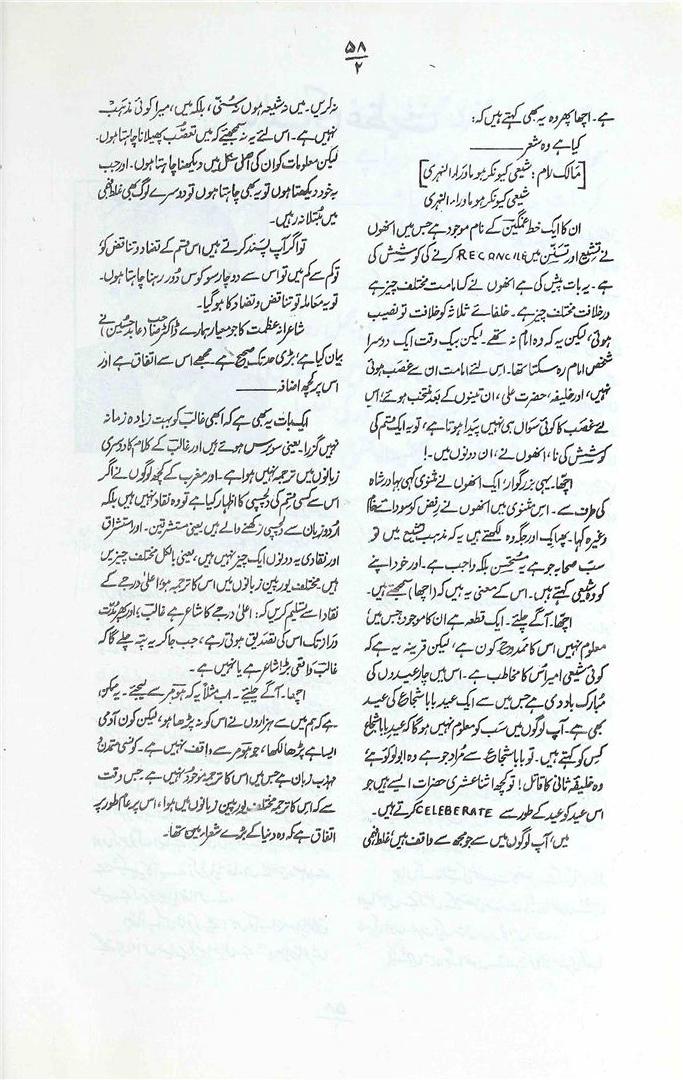 ۵۸
۲
ہے۔ اچھا پھر وہ یہ بھی کہتے ہیں کہ:
کیا ہے وہ شعر
[مالک رام: شیعی کیونکر ہو ماوراء النہری]
شیعی کیونکر ہو ماوراء النہری
ان کا ایک خط غمگین کے نام موجود ہے جس میں انھوں
نے تشیع اور تسنّن میں RECONCILE کرنے کی کوشش کی
ہے۔ یہ بات پیش کی ہے انھوں نے کہ امامت مختلف چیز ہے
در خلافت مختلف چیز ہے۔ خلفائے ثلاثہ کو خلافت تو نصیب
ہوئی، لیکن یہ کہ وہ امام نہ تھے۔ لیکن بیک وقت ایک دوسرا
شخص امام رہ سکتا تھا۔ اس لئے امامت ان سے غصب ہوئی
نہیں، اور خلیفہ، حضرت علی، ان تینوں کے بعد منتخب ہوئے؛ اس
لئے غصب کا کوئی سوال ہی نہیں پیدا ہوتا ہے، تو یہ ایک قسم کی
کوشش کی نا، انھوں نے، ان دونوں میں۔!
اچھا۔ یہی بزرگوار؛ ایک انھوں نے مثنوی کہی بہادر شاہ
کی طرف سے۔ اس مثنوی میں انھوں نے رفض کو سودائے خام
وغیرہ کہا۔ پھر ایک اور جگہ وہ لکھتے ہیں کہ مذہب تشیع میں تو
سبّ صحابہ جو ہے یہ مستحسن بلکہ واجب ہے۔ اور خود اپنے
کو وہ شیعی کہتے ہیں۔ اس کے معنی یہ ہیں کہ (اچھا) سمجھتے ہیں۔
اچھا۔ آگے چلئے۔ ایک قطعہ ہے ان کا موجود جس میں
معلوم نہیں اس کا ممدوح کون ہے، لیکن قرینہ یہ ہے کہ
کوئی شیعی امیر اس کا مخاطب ہے۔ اس میں چار عیدوں کی
مبارک باد دی ہے جس میں سے ایک عید بابا شجاع کی عید
بھی ہے۔ آپ لوگوں میں سب کو معلوم نہیں ہوگا کہ عید بابا شجاع
کس کو کہتے ہیں۔ تو بابا شجاع سے مراد جو ہے وہ ابولولو ہے؛
وہ خلیفہ ثانی کا قاتل! تو کچھ اثنا عشری حضرات ایسے ہیں جو
اس عید کو عید کے طور سے CELEBERATE کرتے ہیں۔
میں، آپ لوگوں میں سے جو مجھ سے واقف ہیں، غلط فہمی
نہ کریں۔ میں نہ شیعہ ہوں نہ سُنّی، بلکہ میں، میرا کوئی مذہب
نہیں ہے۔ اس لئے یہ نہ سمجھئے کہ میں تعصّب پھیلانا چاہتا ہوں۔
لیکن معلومات کو ان کی اصلی شکل میں دیکھنا چاہتا ہوں۔ اور جب
یہ خود دیکھتا ہوں تو یہ بھی چاہتا ہوں تو دوسرے لوگ بھی غلط فہمی
میں مبتلا نہ رہیں۔
تو اگر آپ پسند کرتے ہیں اس قسم کے تضاد و تناقض کو
تو کم سے کم میں تو اس سے دو چار سو کوس دُور رہنا چاہتا ہوں۔
تو یہ معاملہ تو تناقض و تضاد کا ہو گیا۔
شاعرانہ عظمت کا جو معیار ہمارے ڈاکٹر صاحب (عابد حسین) نے
بیان کیا ہے؛ بڑی حد تک صحیح ہے۔ مجھے اس سے اتفاق ہے اور
اس پر کچھ اضافہ
ایک بات یہ بھی ہے کہ ابھی غالب کو بہت زیادہ زمانہ
نہیں گزرا۔ یعنی سو برس ہوتے ہیں اور غالب کے کلام کا دوسری
زبانوں میں ترجمہ نہیں ہوا ہے۔ اور مغرب کے کچھ لوگوں نے اگر
اس سے کسی قسم کی دلچسپی کا اظہار کیا ہے تو وہ نقاد نہیں ہیں بلکہ
اُردو زبان سے دلچسپی رکھنے والے ہیں یعنی مستشرقین۔ اور استشراق
اور نقادی یہ دونوں ایک چیز نہیں ہیں، یعنی بالکل مختلف چیزیں
ہیں مختلف یورپین زبانوں میں اس کا ترجمہ ہو؛ اعلیٰ درجے کے
نقاد اسے تسلیم کریں کہ: اعلیٰ درجے کا شاعر ہے غالب، اور پھر مدّت
دراز تک اس کی تصدیق ہوتی رہے، جب جا کر یہ پتہ چلے گا کہ
غالب واقعی بڑا شاعر ہے یا نہیں ہے۔
اچھا۔ آگے چلئے۔ اب مثلاً یہ کہ ہومر سے لیجئے۔ یہ ممکن
ہے کہ ہم میں سے ہزاروں نے اس کو نہ پڑھا ہو، لیکن کون آدمی
ایسا ہے پڑھا لکھا، جو ہومر سے واقف نہیں ہے۔ کونسی متمدن
مہذب زبان ہے جس میں اس کا ترجمہ موجود نہیں ہے۔ جس وقت
سے کہ اس کا ترجمہ مختلف یورپین زبانوں میں ہوا، اس پر عام طور پہ
اتفاق ہے کہ وہ دنیا کے بڑے شعراء میں تھا۔